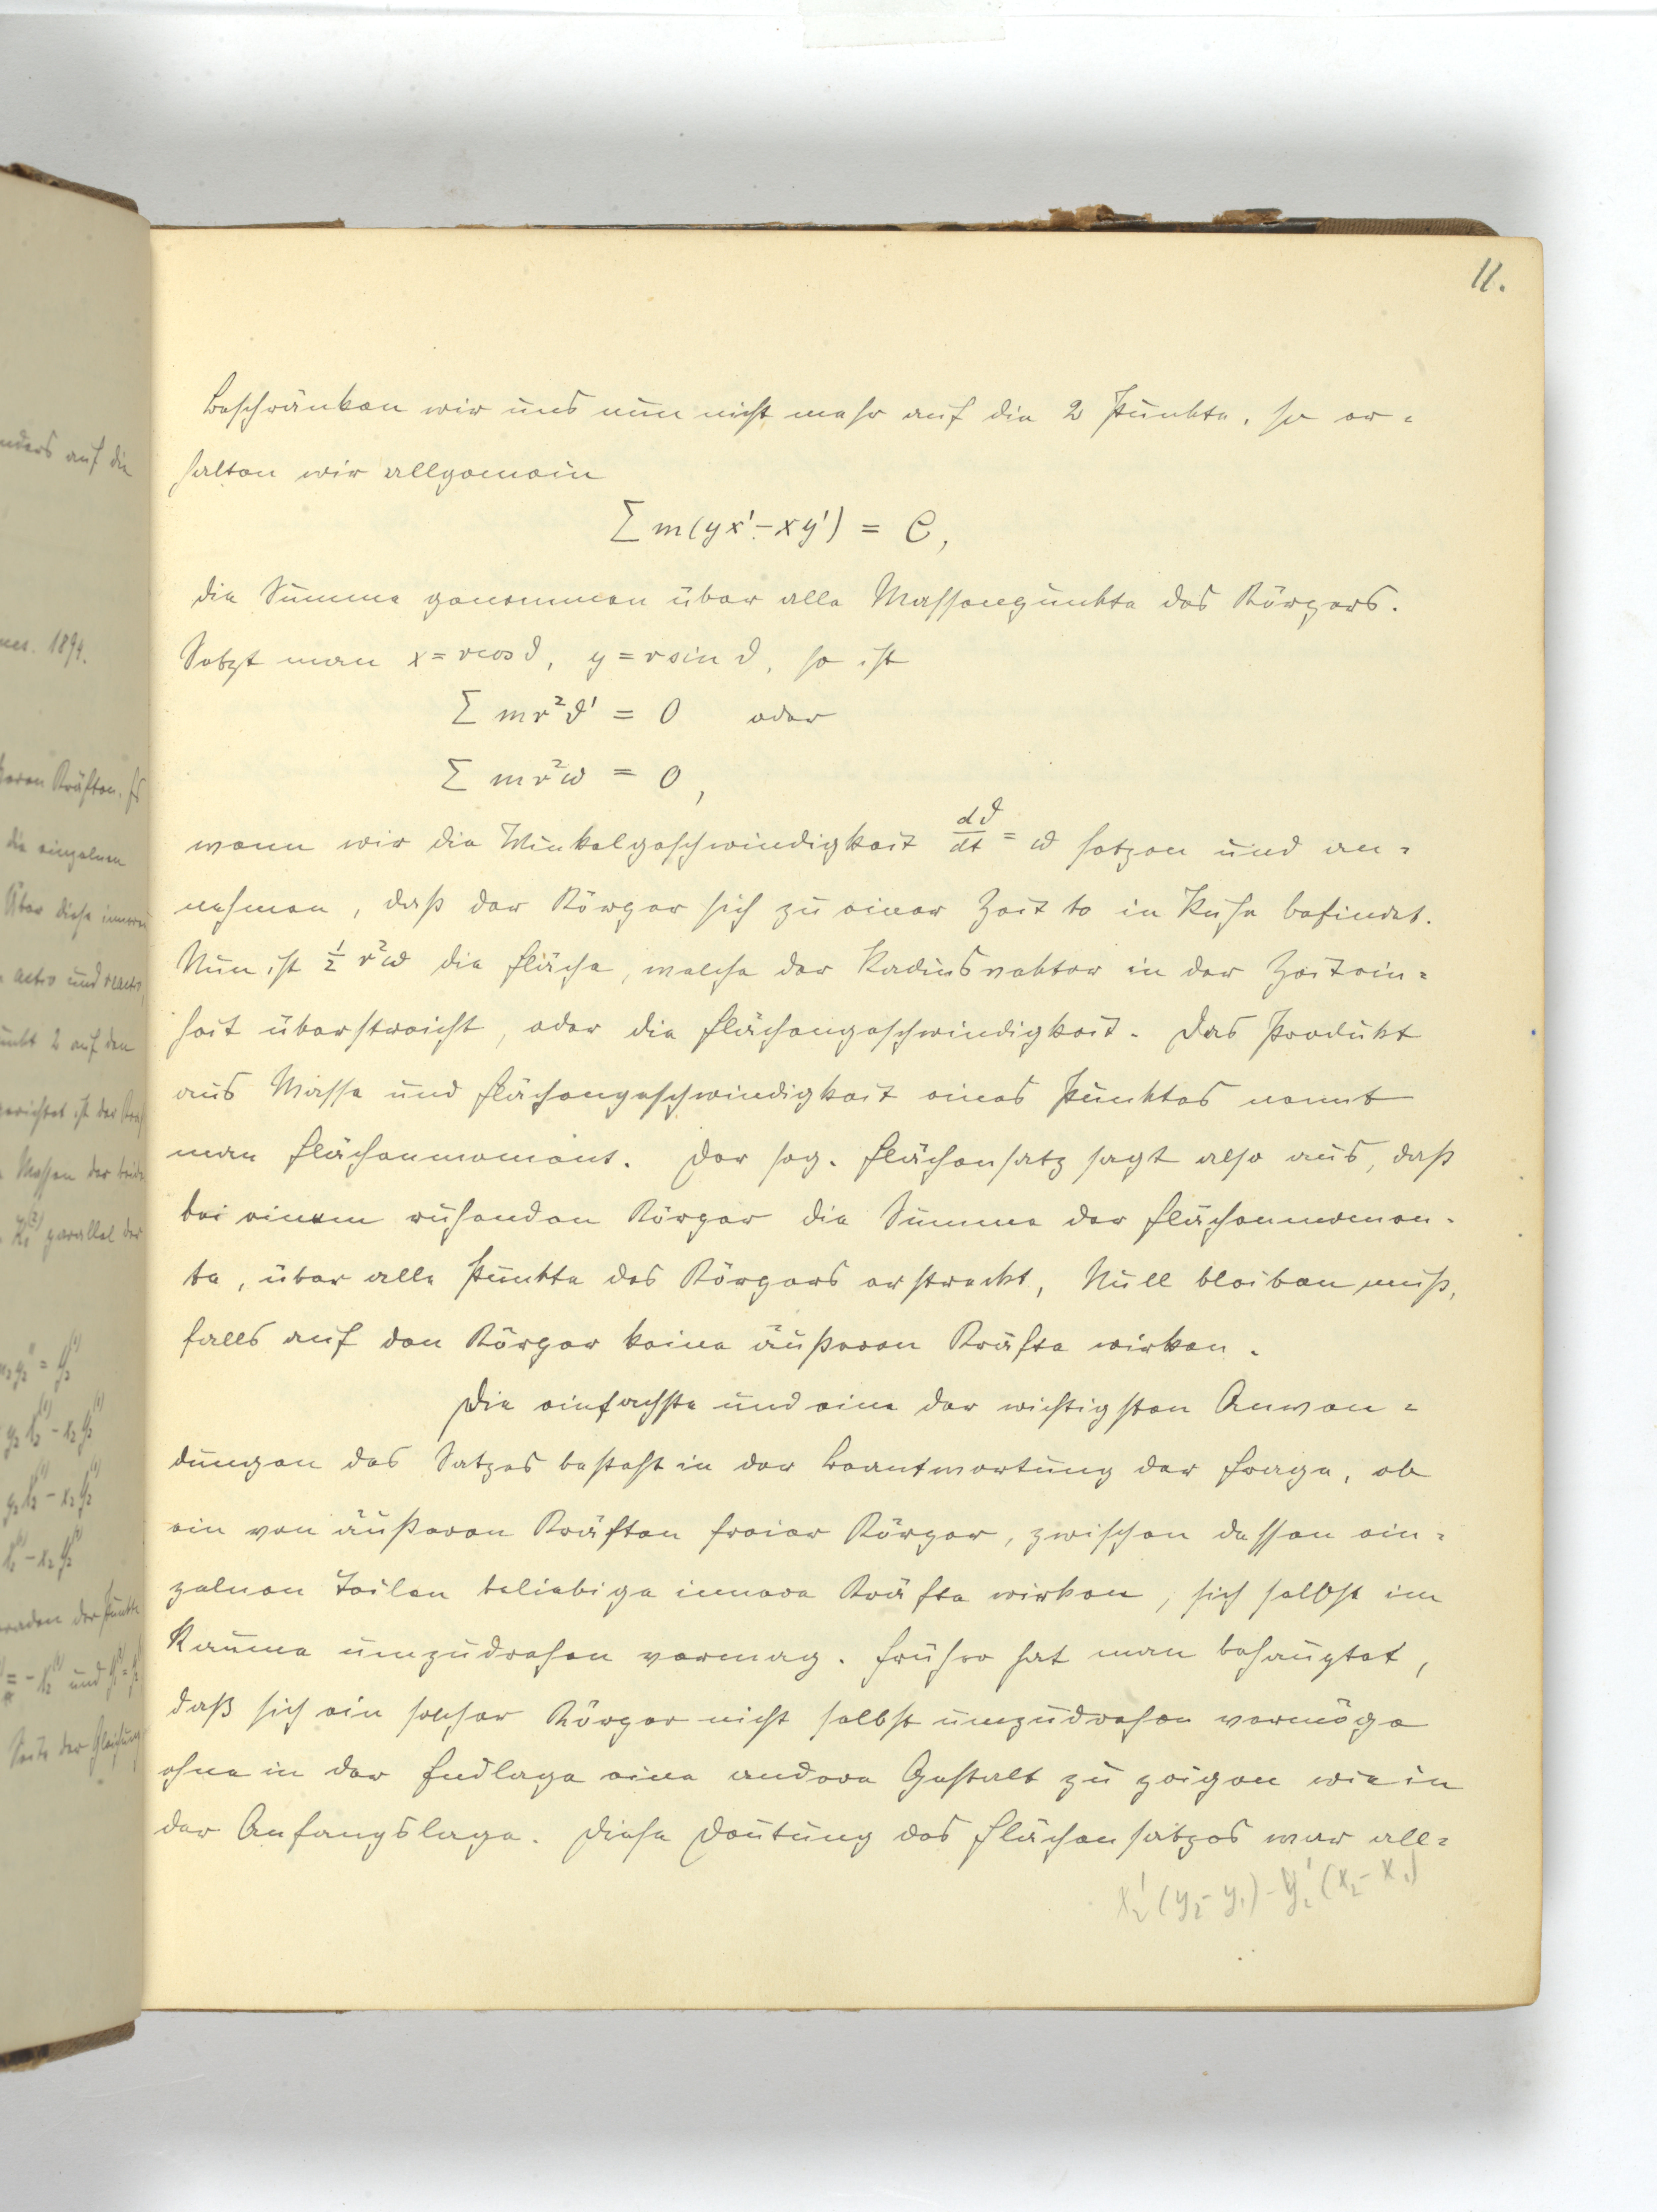 11.
Beschränken wir uns nun nicht mehr auf die 2 Punkte, so er=
halten wir allgemein
Σ m(yx'-xy') = C,
die Summe genommen über alle Massenpunkte des Körpers.
Setzt man x = r cos ϑ, y = r sin ϑ, so ist
Σ mr²ϑ' = 0 oder
Σ mr²ω = 0,
wenn wir die Winkelgeschwindigkeit dϑ/dt = ω setzen und an=
nehmen, daß der Körper sich zu einer Zeit to in Ruhe befindet.
Nun ist ½ r²ω die Fläche, welche der Radiusvektor in der Zeitein=
heit überstreicht, oder die Flächengeschwindigkeit. Das Produkt
aus Masse und Flächengeschwindigkeit eines Punktes nennt
man Flächenmoment. Der sog. Flächensatz sagt also aus, daß
bei einem ruhenden Körper die Summe der Flächenmomen-
te, über alle Punkte des Körpers erstreckt, Null bleiben muß,
falls auf den Körper keine äußeren Kräfte wirken.
Die einfachste und eine der wichtigsten Anwen=
dungen des Satzes besteht in der Beantwortung der Frage, ob
ein von äußeren Kräften freier Körper, zwischen dessen ein=
zelnen Teilen beliebige innere Kräfte wirken, sich selbst im
Raume umzudrehen vermag. Früher hat man behauptet,
daß sich ein solcher Körper nicht selbst umzudrehen vermöge
ohne in der Endlage eine andere Gestalt zu zeigen wie in
der Anfangslage. Diese Deutung des Flächensatzes war all=
x₂'(y₂-y₁)-y₂'(x₂-x₁)
nders auf die
1894.
die einzelnen
Aber diese inneren
activ und reactiv,
2 auf den
gerichtet ist der
Massen der beiden
parallel der
der Punkte
und
Seite der Gleichung